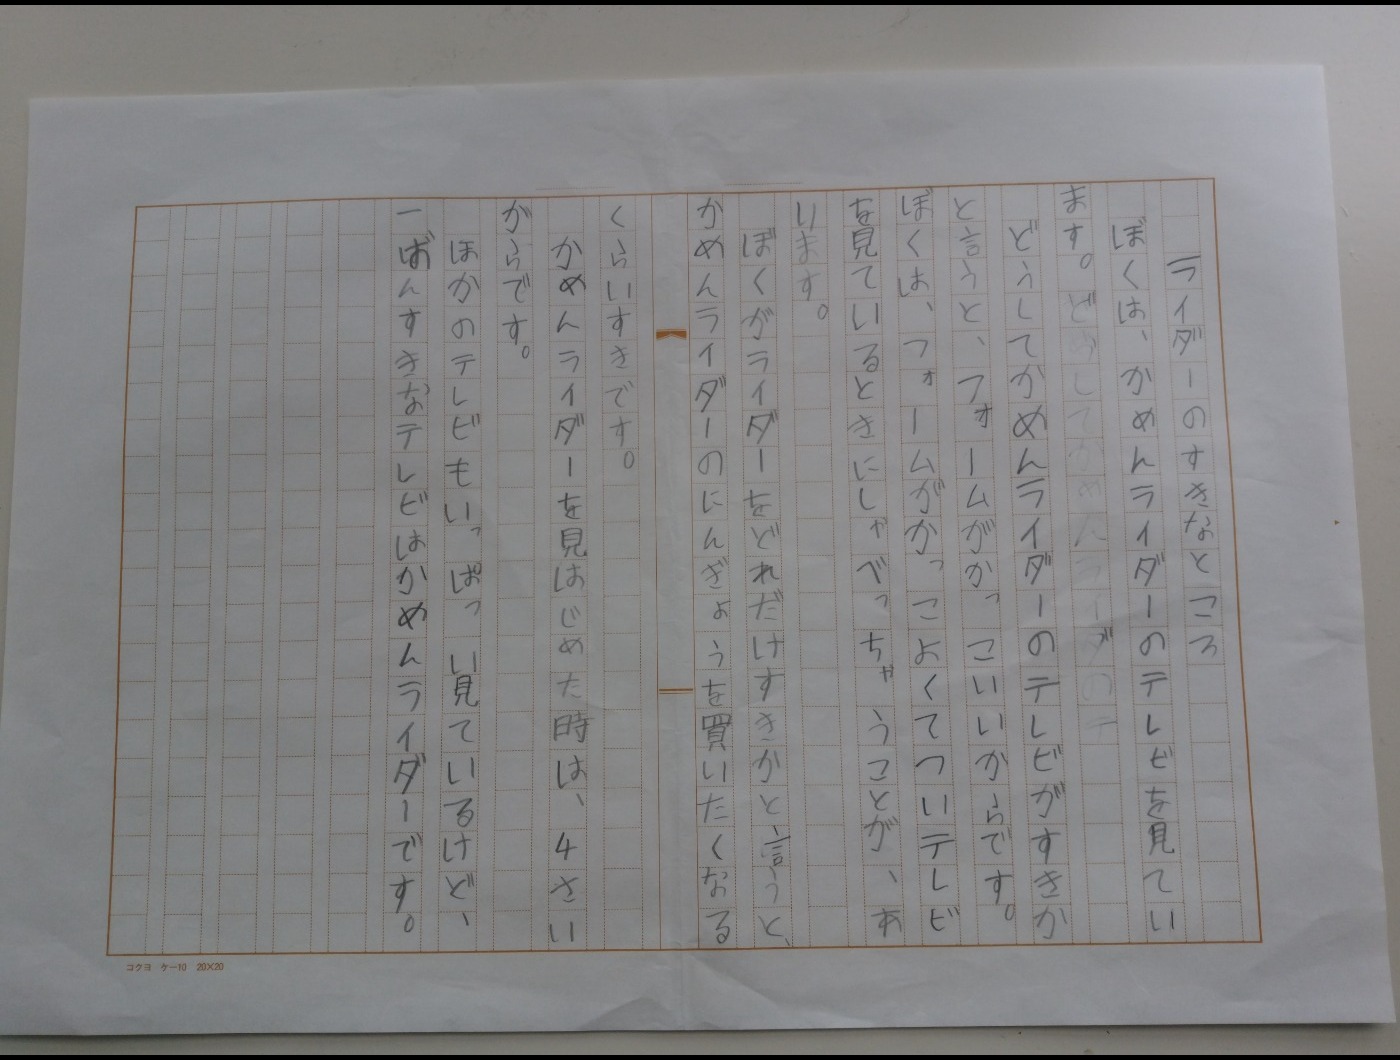 ライダーのすきなところ
ぼくは、かめんライダーのテレビを見てい
ます。どうしてかめんライダーのテ
どうしてかめんライダーのテレビがすきか
と言うと、フォームがかっこいいからです。
ぼくは、フォームがかっこよくてついテレビ
を見ているときにしゃべっちゃうことが、あ
ります。
ぼくがライダーをどれだけすきかと言うと、
かめんライダーのにんぎょうを買いたくなる
くらいすきです。
かめんライダーを見はじめた時は、4さい
からです。
ほかのテレビもいっぱっい見ているけど、
一ばんすきなテレビはかめんライダーです。
コクヨ ケー10 20×20